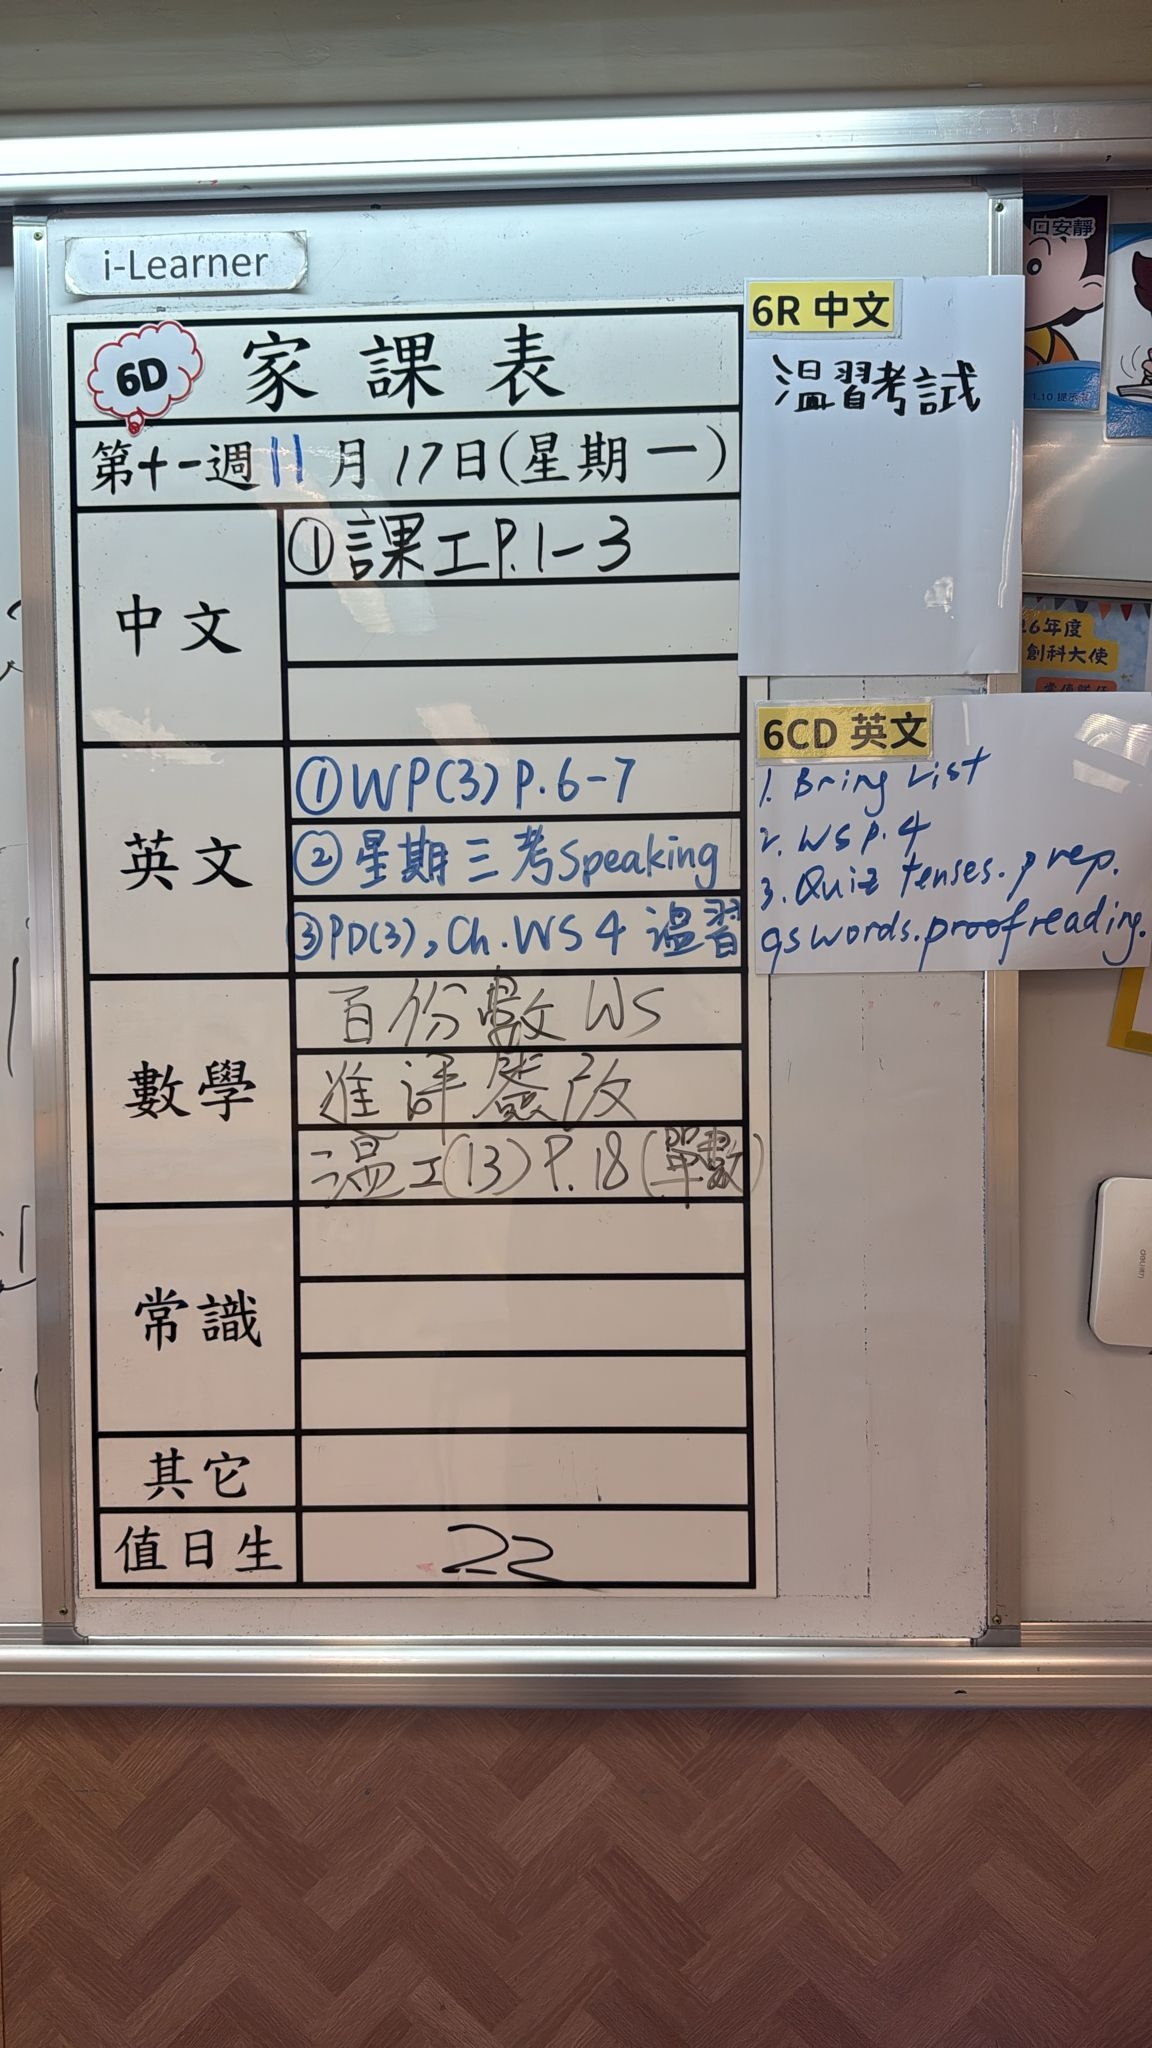 i-Learner
6D 家課表
第十一週11月17日(星期一)
中文
①課工P.1-3
英文
①WP(3) P.6-7
②星期三考Speaking
③PD(3), Ch.WS 4 溫習
數學
百份數WS
進評簽改
溫工(13)P.18(單數)
常識
其它
值日生
22
6R 中文
溫習考試
6CD 英文
1. Bring List
2. WS P.4
3. Quiz tenses. prep.
qswords.proofreading.
口安靜
1.10
26年度
創科大使
deli